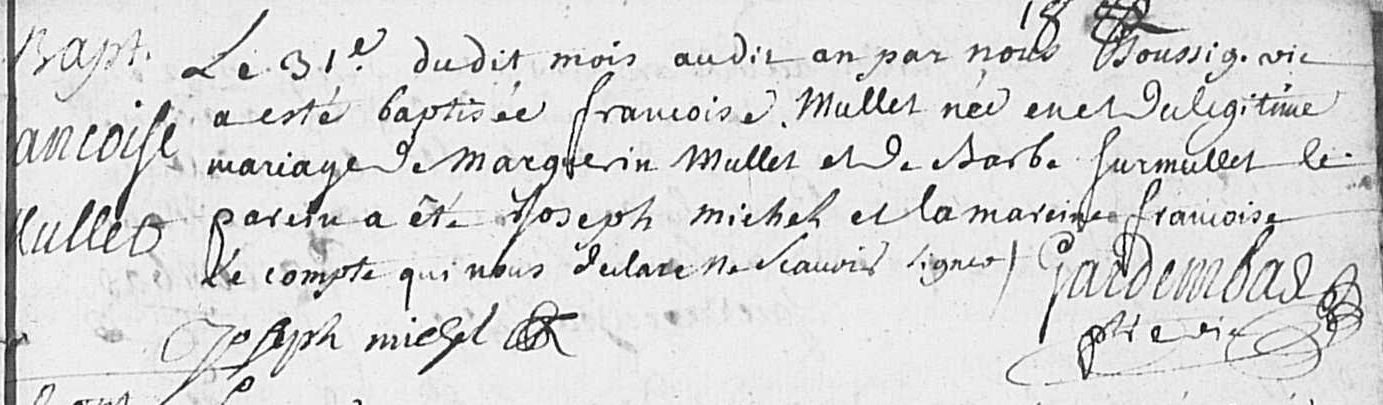 Bapt.
ancoise
Mullet
Le 31e dudit mois audit an par nous soussig. vic
a esté baptisée francoise Mullet née en et du legitime
mariage de Marguerin Mullet et de Barbe surmullet le
parein a été joseph michel et la mareine francoise
Le compte qui nous declare ne scauoir signer
Joseph michel
Gardembas
ptre vic